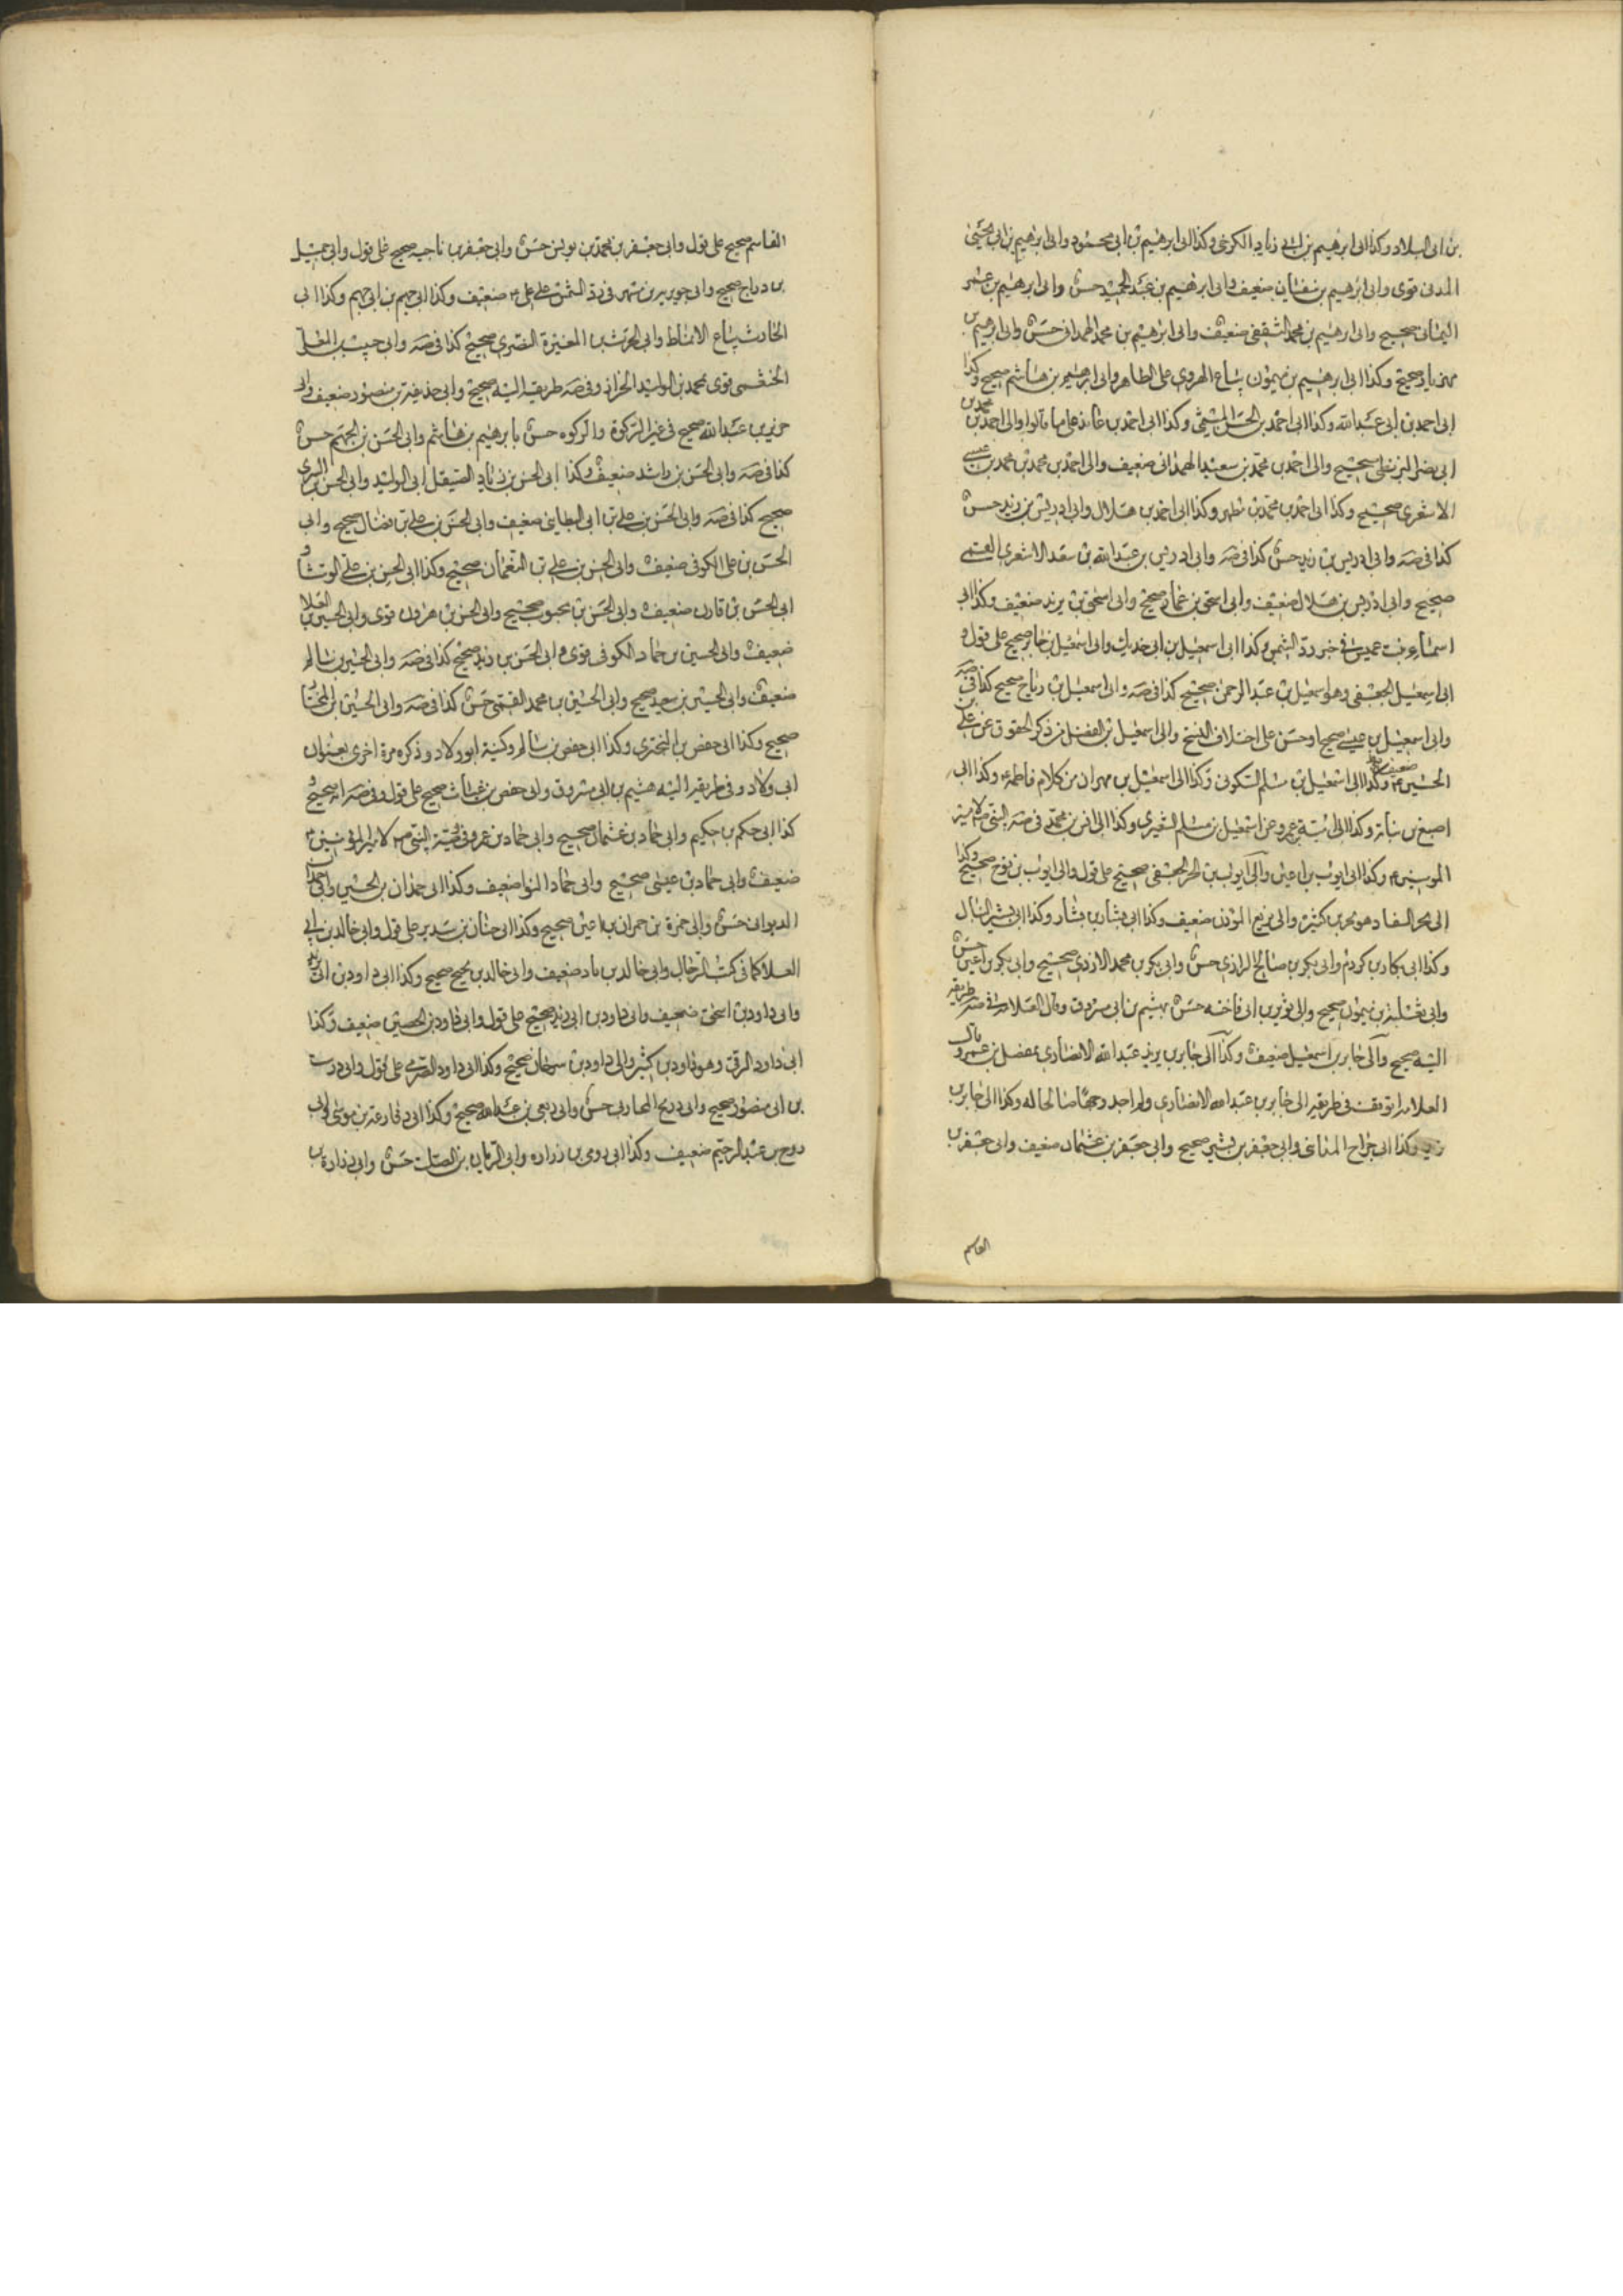 بن ابى البلاد وكذا الى ابرهيم بن ابى زياد الكوفى وكذا الى ابرهيم بن ابى محمود والى ابرهيم بن ابى يحيى
المدنى قوى والى ابرهيم بن سفيان ضعيف والى ابرهيم بن عبد الحميد حسن والى ابرهيم بن عمر
اليمانى صحيح والى ابرهيم بن محمد الثقفى ضعيف والى ابرهيم بن محمد الهمدانى حسن والى ابرهيم بن
مهزيار صحيح وكذا الى ابرهيم بن ميمون بياع الهروى على الظاهر والى ابرهيم بن هاشم صحيح وكذا
الى احمد بن ابى عبد الله وكذا الى احمد بن الحسن الميثمى وكذا الى احمد بن عائذ على ما قالوا والى احمد بن محمد بن
ابى نصر البزنطى صحيح والى احمد بن محمد بن سعيد الهمدانى ضعيف والى احمد بن محمد بن عيسى
الاشعرى صحيح وكذا الى احمد بن محمد بن مطهر وكذا الى احمد بن هلال والى ادريس بن زيد حسن
كذا فى صه والى ادريس بن زيد حسن كذا فى صه والى ادريس بن عبد الله بن سعد الاشعرى القمى
صحيح والى ادريس بن هلال ضعيف والى اسحق بن عمار صحيح والى اسحق بن يزيد ضعيف وكذا الى
اسماء بنت عميس فى خبر رد الشمس وكذا الى اسمعيل بن ابى فديك والى اسمعيل بن جابر صحيح على قول و
الى اسمعيل الجعفى وهو اسمعيل بن عبد الرحمن صحيح كذا فى صه والى اسمعيل بن رباح صحيح كذا فى صه
والى اسمعيل بن عيسى صحيح او حسن على اختلاف النسخ والى اسمعيل بن الفضل من ذكر الحقوق عن على بن
الحسين ع ضعيف وكذا الى اسمعيل بن مسلم السكونى وكذا الى اسمعيل بن مهران من كلام فاطمة ع وكذا الى
اصبغ بن نباتة وكذا الى امية بن عمرو عن اسمعيل بن مسلم الشعيرى وكذا الى انس بن محمد فى وصية النبى ص لامير
المومنين ع وكذا الى ايوب بن اعين والى ايوب بن الحر الجعفى صحيح على قول والى ايوب بن نوح صحيح وكذا
الى بحر السقا وهو بحر بن كثير والى بزيع المؤذن ضعيف وكذا الى بشار بن بشار وكذا الى بشير النبال
وكذا الى بكار بن كردم والى بكر بن صالح الرازى حسن والى بكر بن محمد الازدى صحيح والى بكير بن اعين حسن
والى ثعلبة بن ميمون صحيح والى ثوير بن ابى فاخته حسن بهيثم بن ابى مسروق وقال العلامة فى صه طريقه
اليه صحيح والى جابر بن اسمعيل ضعيف وكذا الى جابر بن يزيد عبد الله الانصارى بمفضل بن عمرو قال
العلامة اتوقف فى طريقه الى جابر بن عبد الله الانصارى ولم اجد وجها صالحا له وكذا الى جابر بن
يزيد وكذا الى جراح المداينى والى جعفر بن بشير صحيح والى جعفر بن عثمان ضعيف والى جعفر بن
القاسم
القاسم صحيح على قول والى جعفر بن محمد بن يونس حسن والى جعفر بن ناجيه صحيح على قول والى جميل
بن دراج صحيح والى جويرية بن مسهر فى رد الشمس على على ع ضعيف وكذا الى جهيم بن ابى جهيم وكذا الى
الحارث بياع الانماط والى الحرث بن المغيرة النصرى صحيح كذا فى صه والى حبيب بن المعلى
الخثعمى قوى بمحمد بن الوليد الخزاز وفى صه طريقه اليه صحيح والى حذيفة بن منصور ضعيف والى
حريز بن عبد الله صحيح فى غير الزكوة والزكوة حسن بابرهيم بن هاشم والى الحسن بن الجهم حسن
كذا فى صه والى الحسن بن راشد ضعيف وكذا الى الحسن بن زياد الصيقل ابى الوليد والى الحسن بن السرى
صحيح كذا فى صه والى الحسن بن على بن ابى حمزة البطاينى ضعيف والى الحسن بن على بن فضال صحيح والى
الحسن بن على الكوفى ضعيف والى الحسن بن على بن النعمان صحيح وكذا الى الحسن بن على الوشا و
الى الحسن بن قارن ضعيف والى الحسن بن محبوب صحيح والى الحسن بن هرون قوى والى الحسين بن ابى العلا
ضعيف والى الحسين بن حماد الكوفى قوى والى الحسن بن زيد صحيح كذا فى صه والى الحسين بن سالم
ضعيف والى الحسين بن سعيد صحيح والى الحسين بن محمد القمى حسن كذا فى صه والى الحسين بن المختار
صحيح وكذا الى حفص بن البخترى وكذا الى حفص بن سالم وكنيته ابو ولاد وذكره مرة اخرى بعنوان
ابى ولاد وفى طريقه اليه هيثم بن ابى مسروق والى حفص بن غياث صحيح على قول وفى صه انه صحيح و
كذا الى حكم بن حكيم والى حماد بن عثمان صحيح والى حماد بن عمرو فى وصية النبى ص لامير المؤمنين ع
ضعيف والى حماد بن عيسى صحيح والى حماد النوا ضعيف وكذا الى حمدان بن الحسين والى حمدان
الديوانى حسن والى حمزة بن حمران بن اعين صحيح وكذا الى حنان بن سدير على قول والى خالد بن ابى
العلا كما فى كتب الرجال والى خالد بن ماد ضعيف والى خالد بن نجيح صحيح وكذا الى داود بن ابى يزيد
والى داود بن اسحق ضعيف والى داود بن ابى زيد صحيح على قول والى داود بن الحصين ضعيف وكذا
الى داود الرقى وهو داود بن كثير والى داود بن سرحان صحيح وكذا الى داود الصرمى على قول والى درست
بن ابى منصور صحيح والى ذريح المحاربى حسن والى ربعى بن عبد الله صحيح وكذا الى رفاعة بن موسى والى
روح بن عبد الرحيم ضعيف وكذا الى رومى بن زراره والى الريان بن الصلت حسن والى زرارة بن